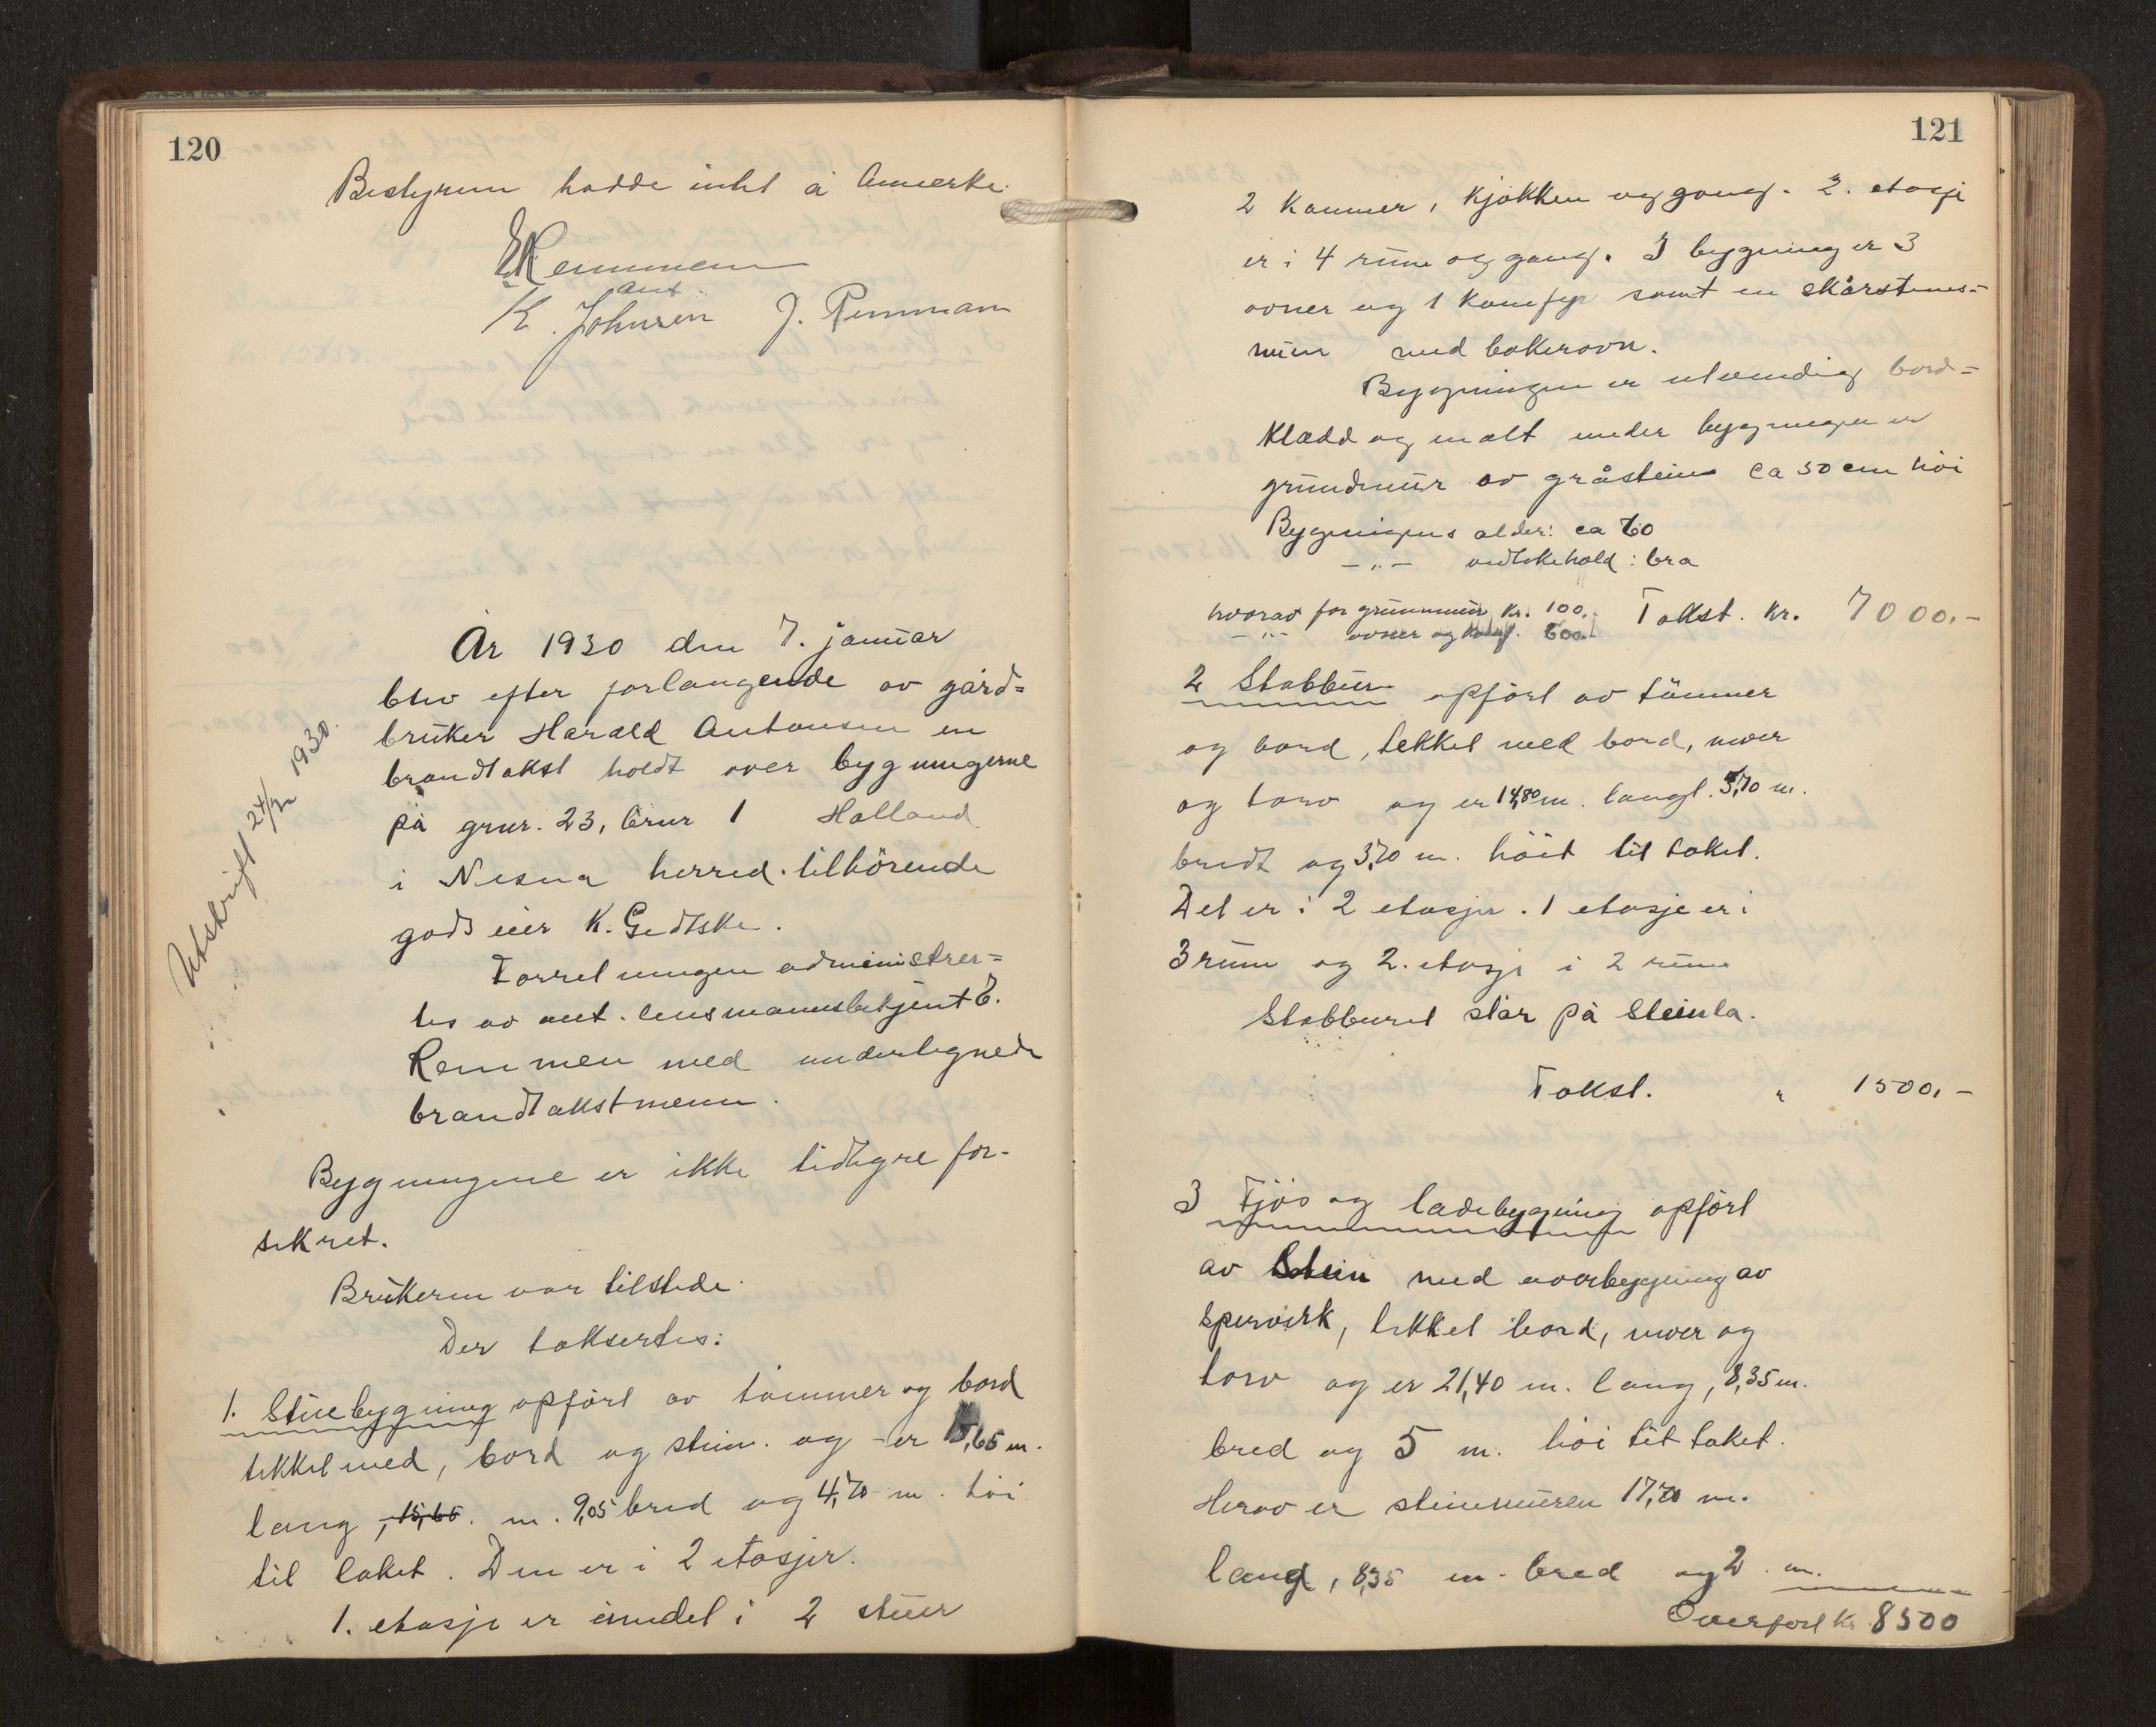 120
Bestyreren hadde intet å anmerke.
E Remmen
aut.
K. Johnsen J. Remman
År 1930 den 7. januar
blev efter forlangende av gård=
bruker Harald Antonsen en
brandtakst holdt over bygningerne
på gnr. 23, brnr 1 Holland
i Nesna herred. tilhörende
godseier K. Gedtske.
Forretningen administrer=
tes av aut. lensmannsbetjent E.
Remmen med undertegnede
brandtakstmenn.
Bygningene er ikke tidligre for-
sikret.
Brukeren var tilstede.
Der taksertes:
1. Stuebygning opført av tømmer og bord
tekket med, bord og stein. og er 15,65 m.
lang, 15,65. m. 9,05 bred og 4,70 m. høi
til taket. Den er i 2 etasjer.
1. etasje er inndel i 2 stuer
Utskrift 24/2 1930.
121
2 kammer, kjøkken og gang. 2. etasje
er i 4 rum og gang. I bygning er 3
ovner og 1 komfyr samt en skårstens=
mur med bakerovn.
Bygningen er utvendig bord=
klædd og malt under bygningen er
grundmur av gråstein ca 50 cm høi
Bygnigens alder: ca 60
-"- vedlikehold: bra
hvorav for grunnmur kr. 100. Takst. kr. 7000.-
-"- ovner og komf. 600.
2 Stabbur opført av tömmer
og bord, tekket med bord, never
og torv og er 14,80 m. langt. 5,70 m.
bredt og 3,70 m. höit til taket.
Det er i 2 etasjer. 1 etasje er i
3 rum og 2. etasje i 2 rum
Stabburet står på Steinla.
Takst. " 1500.-
3 Fjös og ladebygning opført
av Stein med overbygning av
spervirk, tekket bord, never og
torv og er 21,40 m. lang, 8,35 m.
bred og 5 m. høi til taket.
Herav er steinmuren 17,70 m.
lang, 8,35 m. bred og 2 m.
Overført kr 8500